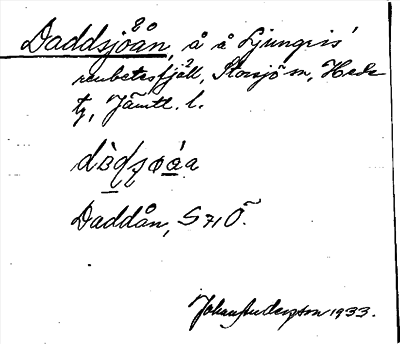 Daddsjöån, å å Ljungris'
renbetesfjäll, Storsjö sn, Hede
tg, Jämtl. l.
Daddån, S 71 Ö.
Johan Anderzson 1933.